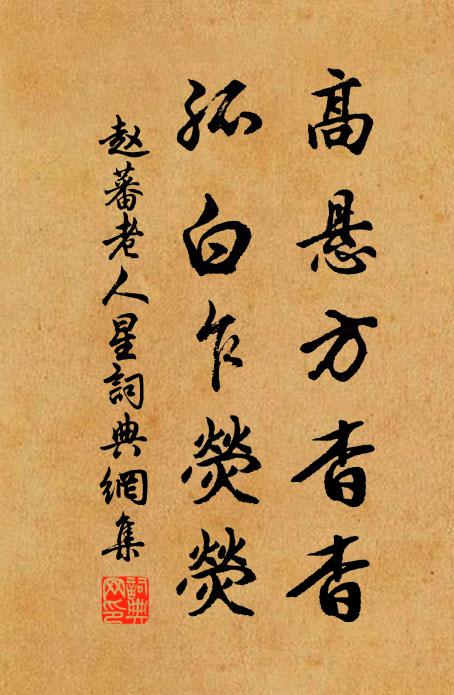 高悬方杳杳
孤白乍熒熒
赵蕃老人星詞典網集
詞典
网印